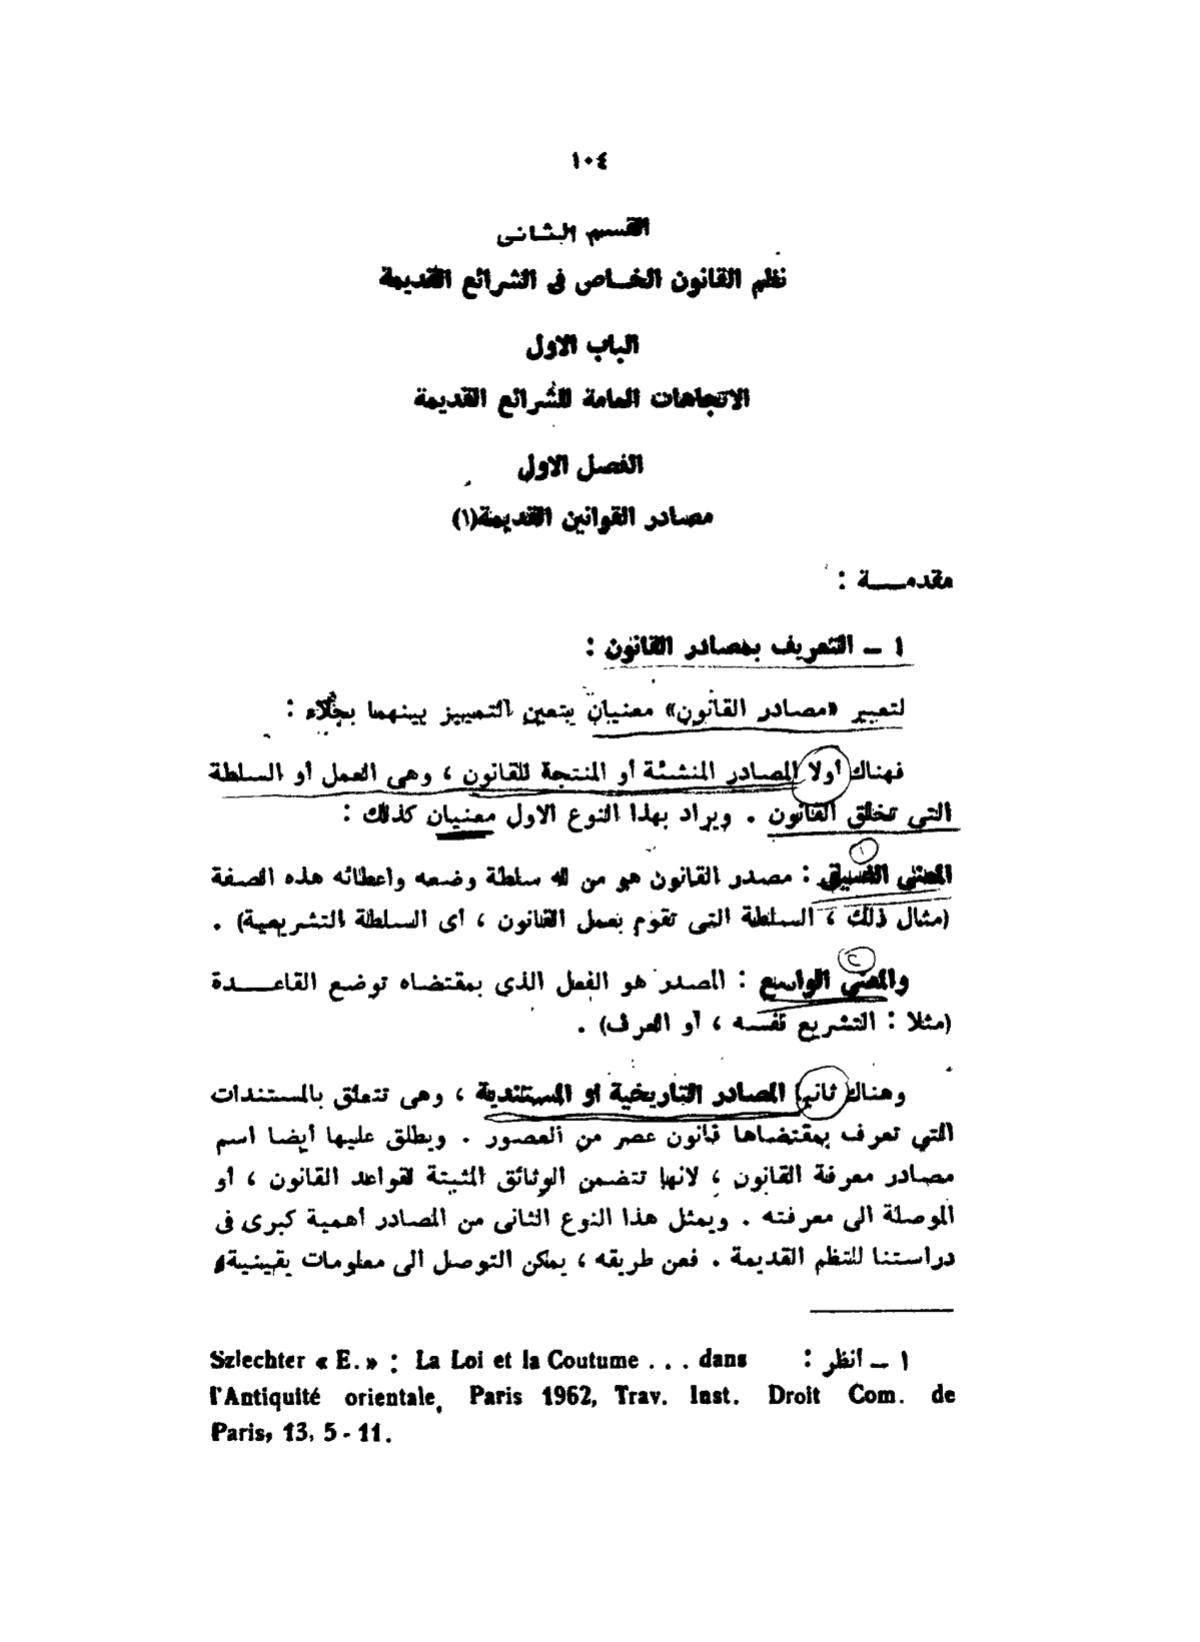 ١٠٤
القسم الثانى
نظم القانون الخـاص فى الشرائع القديمة
الباب الاول
الاتجاهات العامة للشرائع القديمة
الفصل الاول
مصادر القوانين القديمة(١)
مقدمــة :
١ - التعريف بمصادر القانون :
لتعبير «مصادر القانون» معنيان يتعين التمييز بينهما بجلاء :
فهناك أولا المصادر المنشئة أو المنتجة للقانون ، وهى العمل أو السلطة
التى تخلق القانون . ويراد بهذا النوع الاول معنيان كذلك :
١
المعنى الضيق : مصدر القانون هو من له سلطة وضعه واعطائه هذه الصفة
(مثال ذلك ، السلطة التى تقوم بعمل القانون ، أى السلطة التشريعية) .
٢
والمعنى الواسع : المصدر هو الفعل الذى بمقتضاه توضع القاعـــدة
(مثلا : التشريع نفسه ، أو العرف) .
وهناك ثانيا المصادر التاريخية او المستندية ، وهى تتعلق بالمستندات
التي تعرف بمقتضاها قانون عصر من العصور . ويطلق عليها أيضا اسم
مصادر معرفة القانون ، لانها تتضمن الوثائق المثبتة لقواعد القانون ، أو
الموصلة الى معرفته . ويمثل هذا النوع الثانى من المصادر أهمية كبرى فى
دراستنا للنظم القديمة . فعن طريقه ، يمكن التوصل الى معلومات يقينية،
١ - انظر : Szlechter « E. » : La Loi et la Coutume . . . dans
l'Antiquité orientale, Paris 1962, Trav. Inst. Droit Com. de
Paris, 13, 5 - 11.